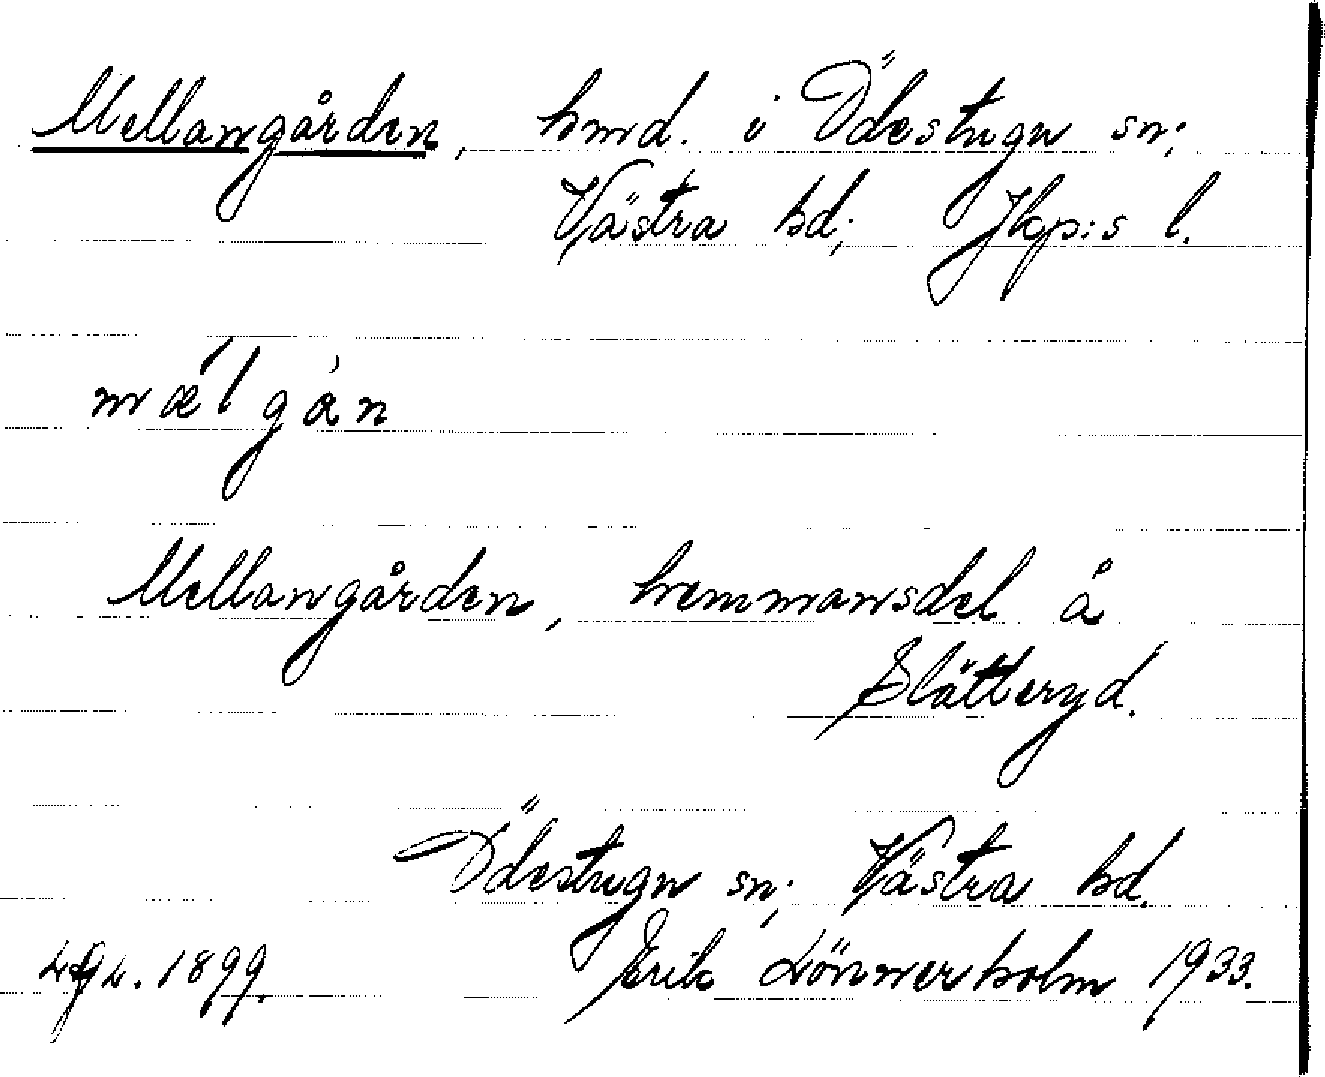 Mellangården, hmd. i Ödestugu sn;
Västra hd; Jkp:s l.
mæ´l gå`n
Mellangården, hemmansdel å
Slätteryd.
Ödestugu sn; Västra hd.
1899. Erik Lönnerholm 1933.